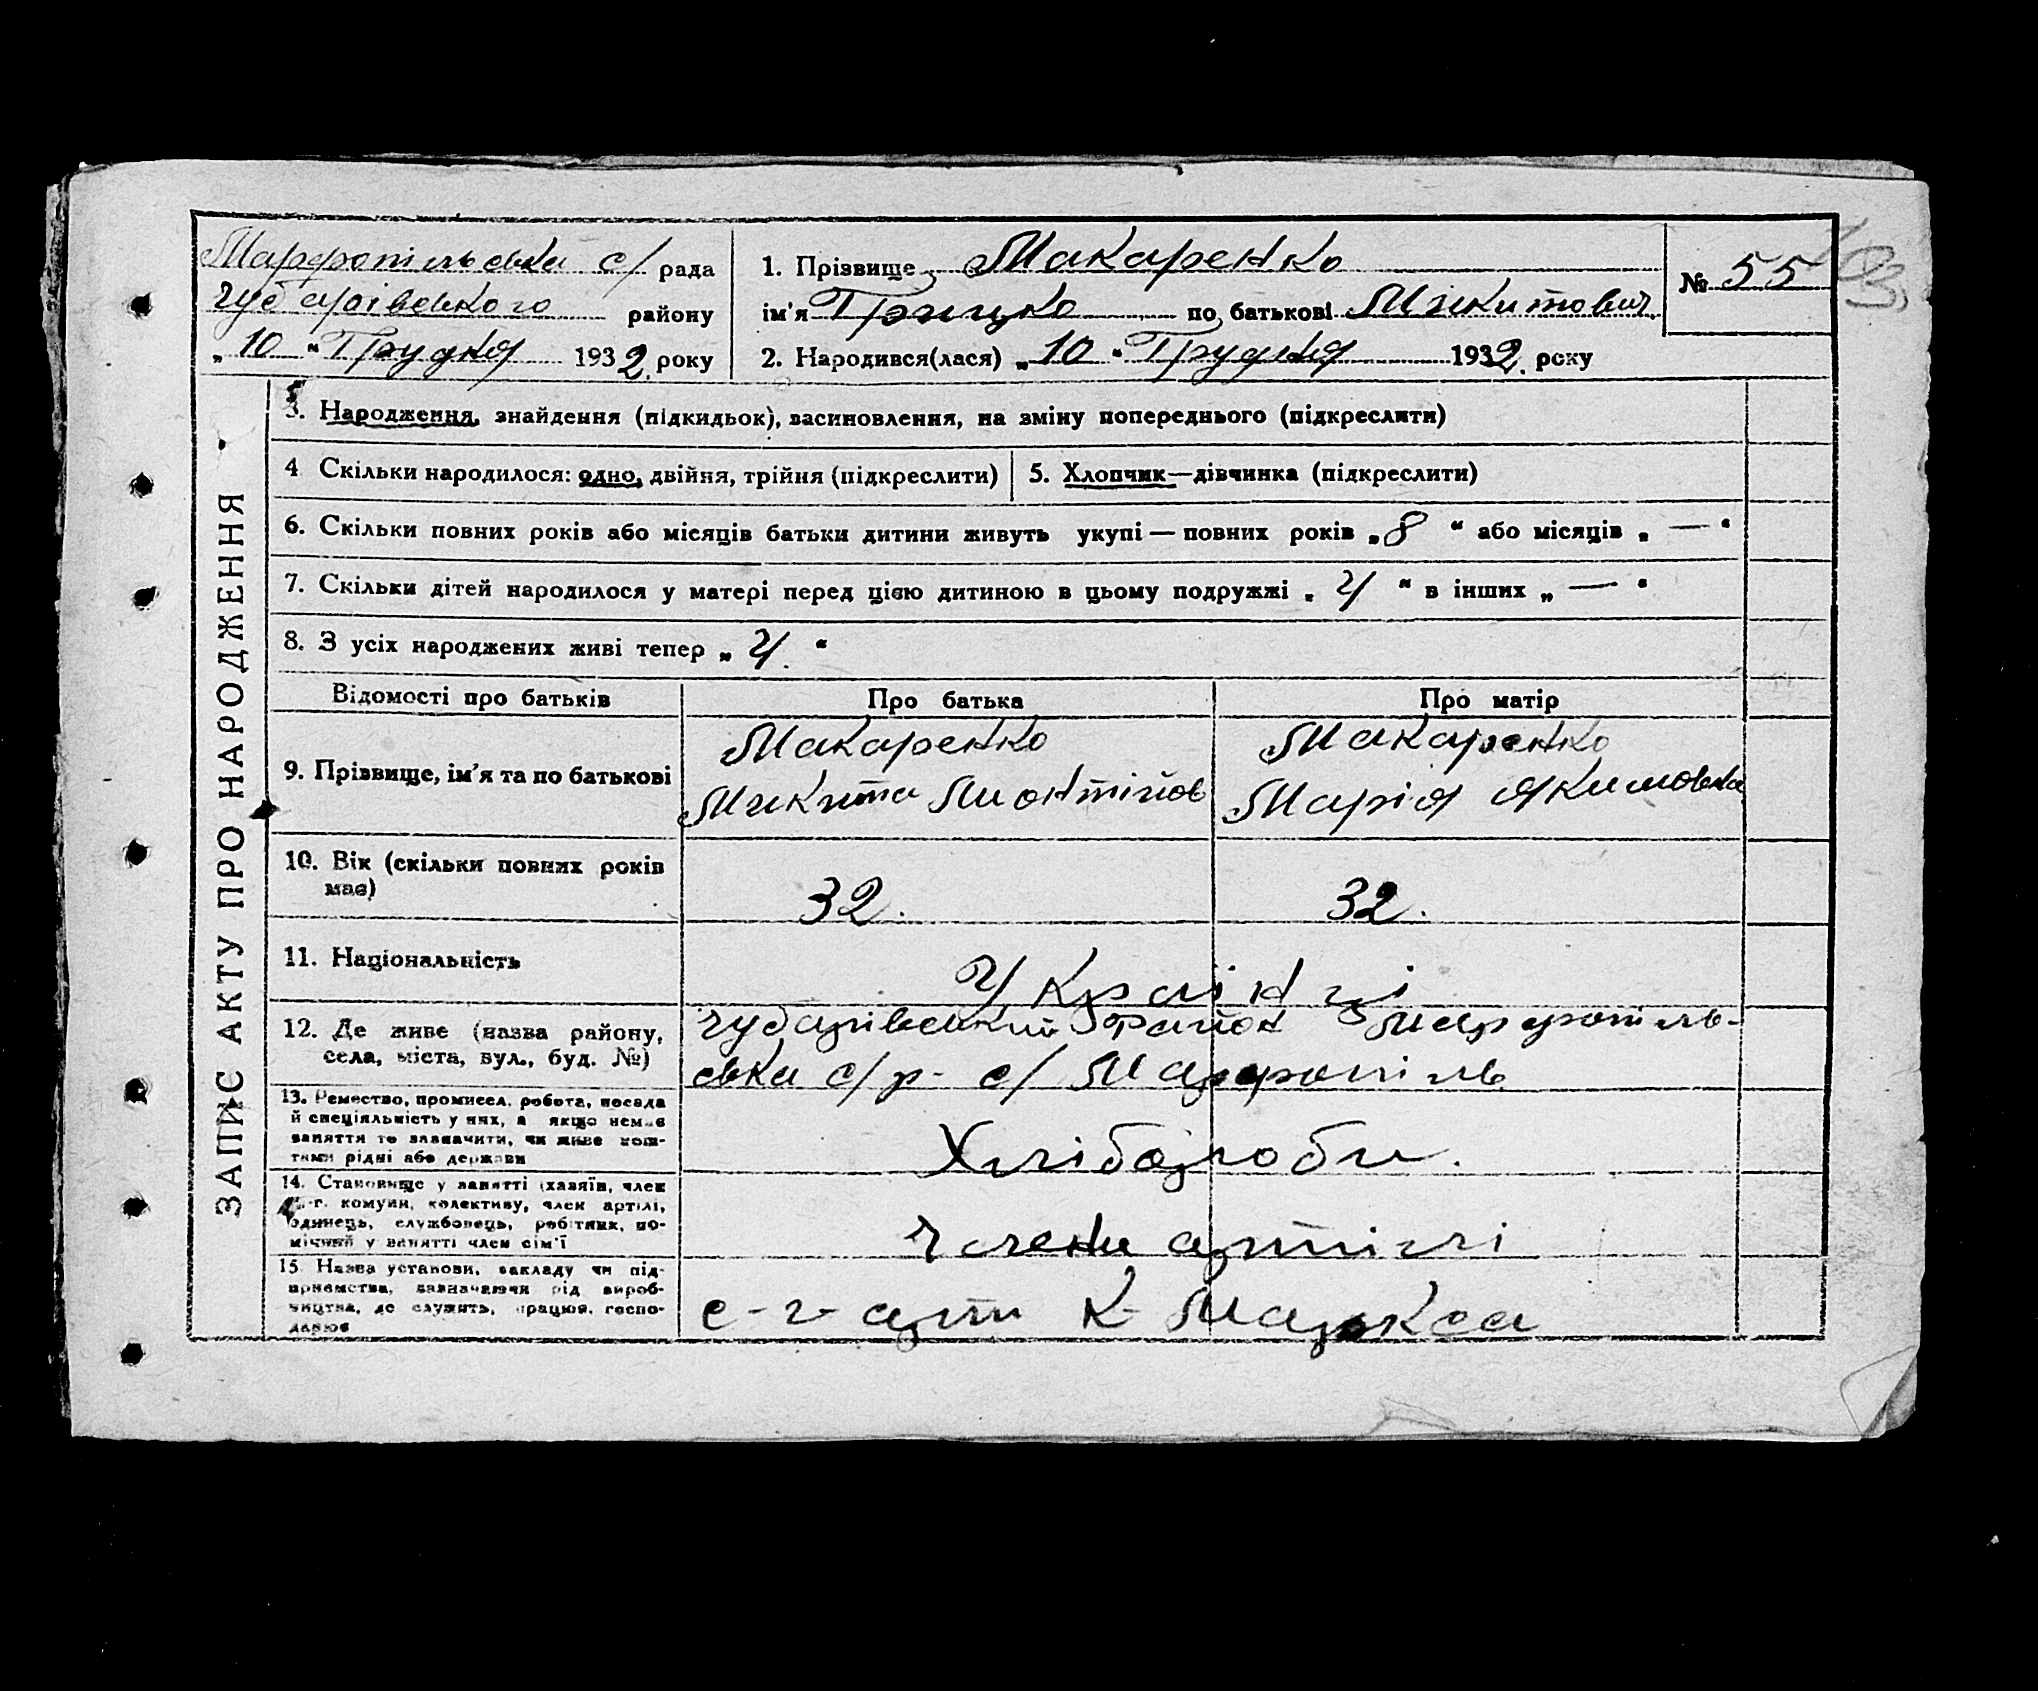 Марфопільська с/ рада
Чубарівського району
„10“ Грудня 1932. року
1. Прізвище Макаренко
ім'я Грицко по батькові Микитович
2. Народився(лася) „10“ Грудня 1932. року
№ 55
ЗАПИС АКТУ ПРО НАРОДЖЕННЯ
3. Народження, знайдення (підкидьок), васиновлення, на зміну попереднього (підкреслити)
4 Скільки народилося: одно, двійня, трійня (підкреслити)
5. Хлопчик—дівчинка (підкреслити)
6. Скільки повних років або місяців батьки дитини живуть укупі — повних років „8“ або місяців „—“
7. Скільки дітей народилося у матері перед цією дитиною в цьому подружжі „4“ в інших „—“
8. З усіх народжених живі тепер „4.“
Відомості про батьків
Про батька
Про матір
9. Прізвище, ім'я та по батькові
Макаренко
Микита Лионтійов
Макаренко
Марія Якимовна
10. Вік (скільки повних років
має)
32.
32.
11. Національність
Українці
12. Де живе (назва району,
села, міста, вул., буд. №)
Чубарівський район Марфопіль-
ська с/р- с/ Марфопіль
13. Ремество, промисел, робота, посада
й спеціяльність у них, а якщо немає
заняття то зазначити, чи живе кош-
тами рідні або держави
Хлібороби.
14. Становище у занятті (хазяїн, член
с.-г. комуни, колективу, член артілі,
одинець, службовець, робітник, по-
мічний у занятті член сім'ї
члени артілі
15. Назва установи, закладу чи під-
приємства, зазначаючи рід вироб-
ництва, де служить, працює, госпо-
дарює
с-г- арт К- Маркса